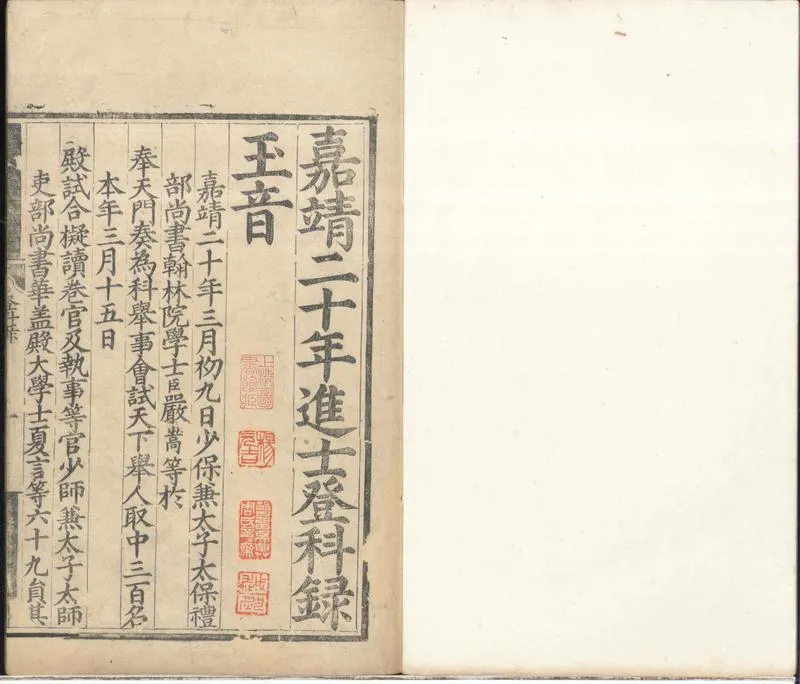 嘉靖二十年進士登科録
玉音
嘉靖二十年三月初九日少保兼太子太保禮
部尚書翰林院學士臣嚴嵩等於
奉天門奏為科舉事會試天下舉人取中三百名
本年三月十五日
殿試合擬讀卷官及執事等官少師兼太子太師
吏部尚書華盖殿大學士夏言等六十九員其